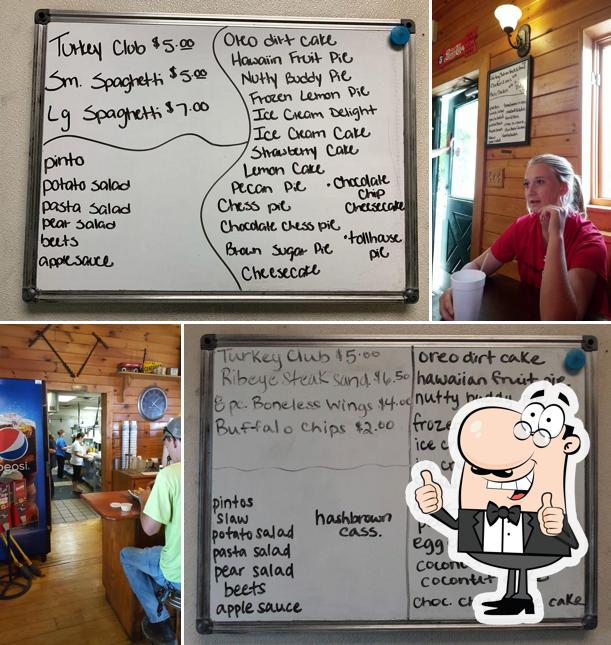 Turkey Club $5.00
Sm. Spaghetti $5.00
Lg Spaghetti $7.00
pinto
potato salad
pasta salad
pear salad
beets
applesauce
Oreo dirt cake
Hawaiin Fruit Pie
Nutty Buddy Pie
Frozen Lemon Pie
Ice Cream Delight
Ice Cream Cake
Strawberry Cake
Lemon Cake
Pecan Pie
Chess pie
Chocolate chess pie
Brown Sugar Pie
Cheesecake
• Chocolate
Chip
Cheesecake
• tollhouse
pie
pepsi
Turkey Club $5.00
Ribeye Steak Sand. $6.50
8 pc. Boneless Wings $4.00
Buffalo Chips $2.00
pintos
slaw
potato salad
pasta salad
pear salad
beets
apple sauce
hashbrown
cass.
oreo dirt cake
hawaiian fruit pie
nutty buddy
ice
egg
coconut
choc. cake